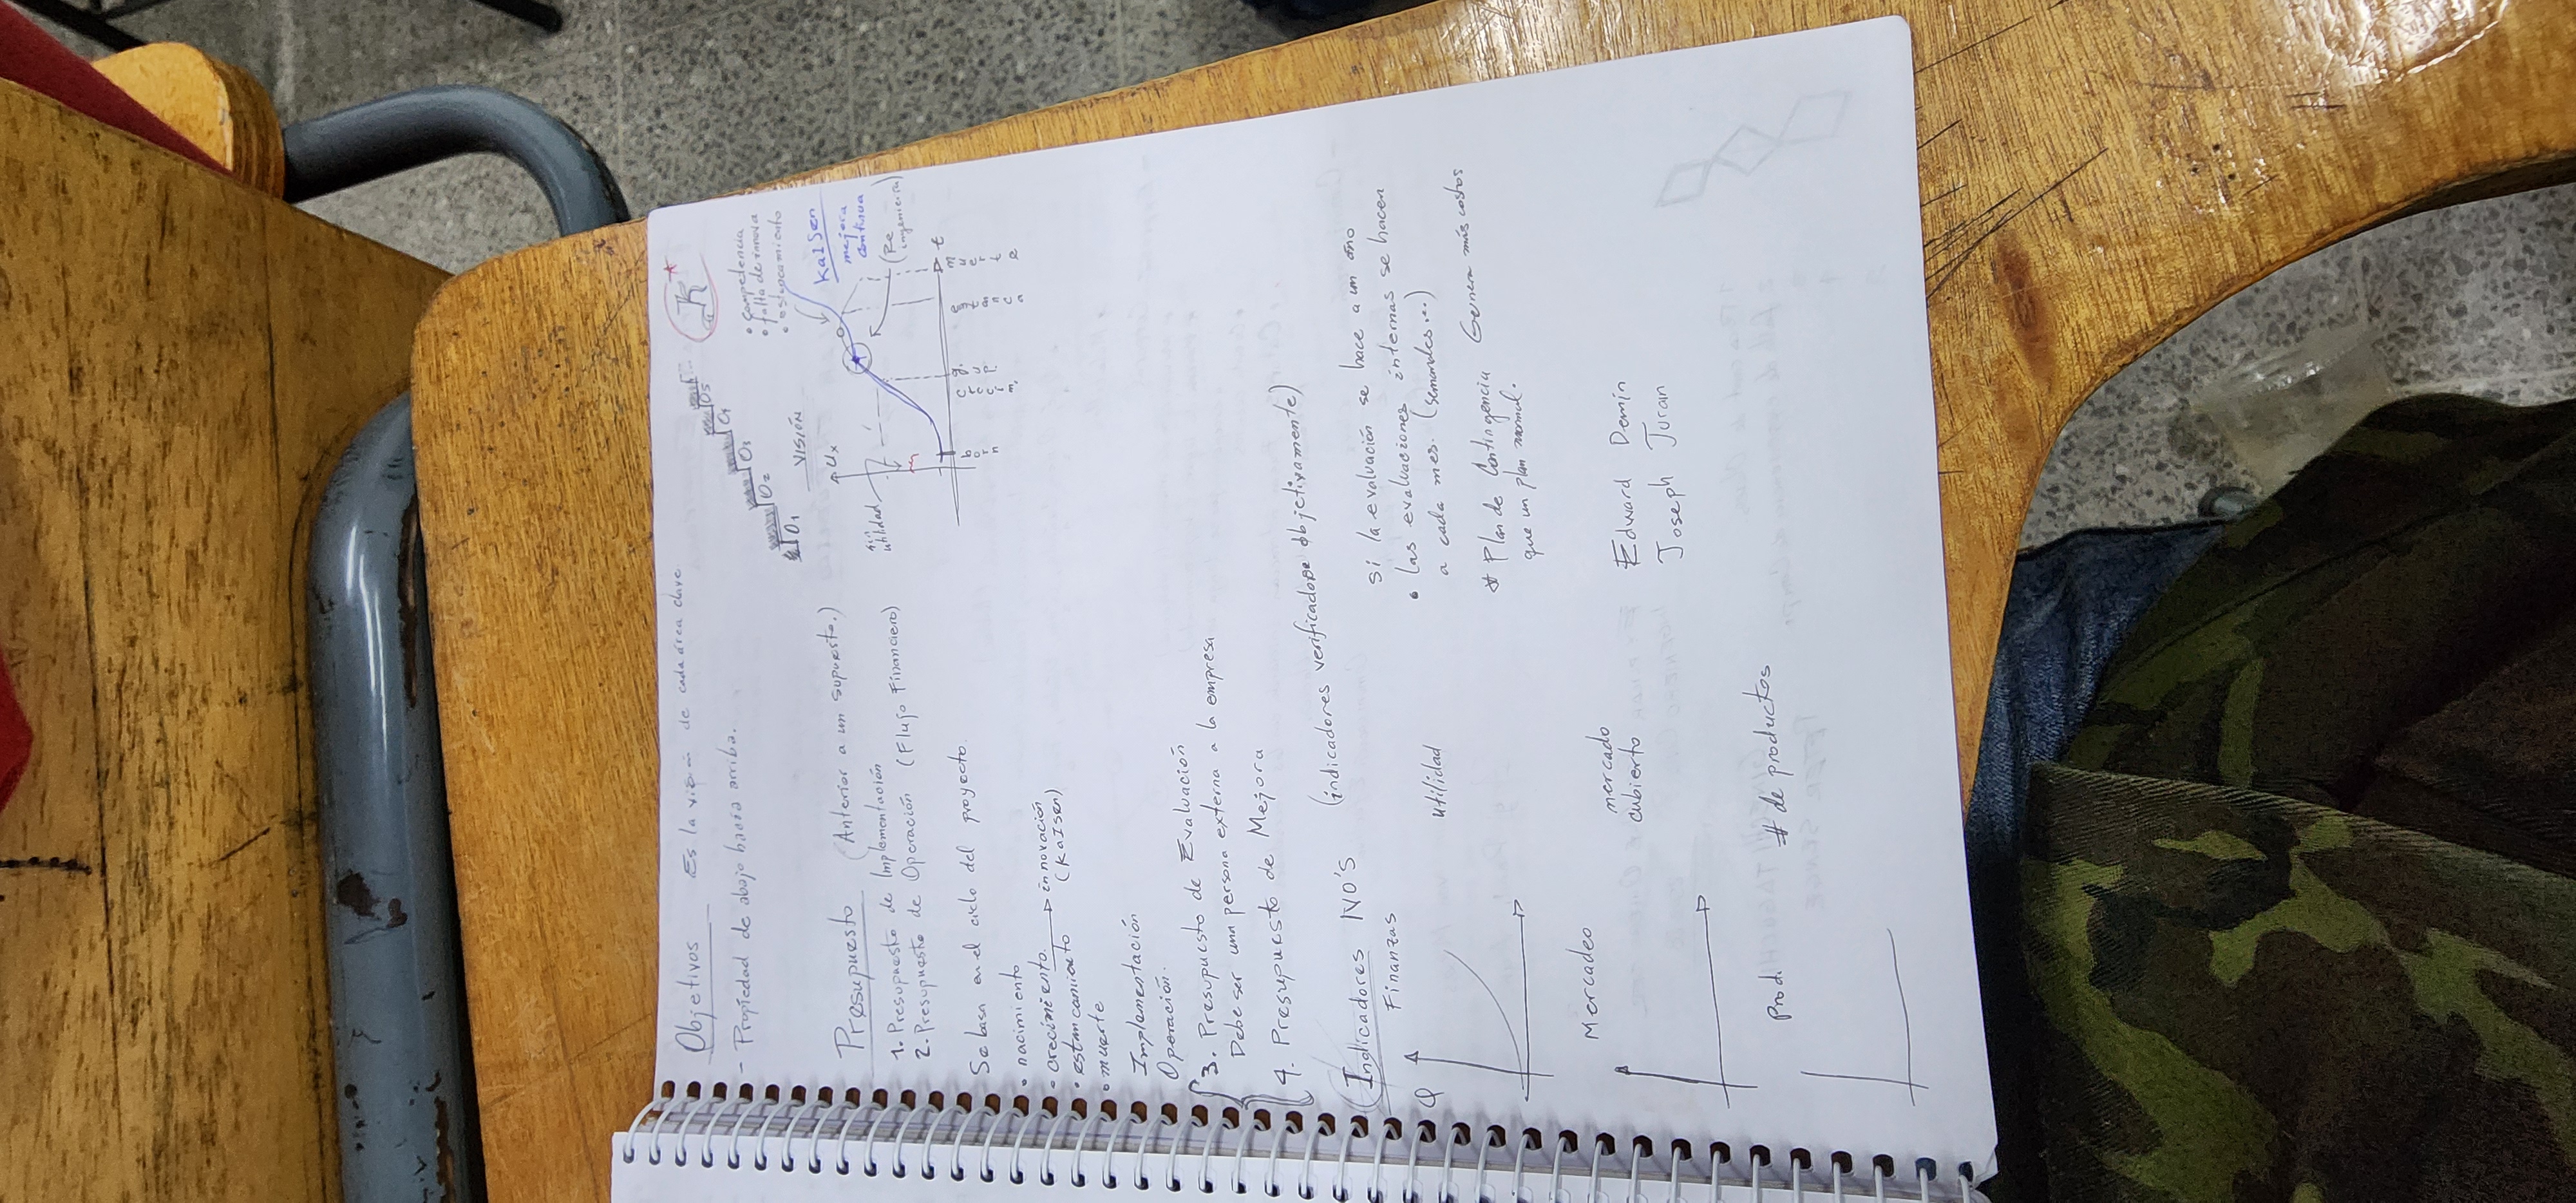 Objetivos Es la visión de cada área clave
- Propiedad de abajo hacia arriba.
O1 O2 O3 O4 O5
K
VISIÓN
• competencia
• falta de innova
• estancamiento
Ux
sin utilidad
KaISen
mejora continua
(Re ingenieria)
t
born
crecim.
g. up.
estanca
muerte
Presupuesto (Anterior a un supuesto.)
1. Presupuesto de Implementación
2. Presupuesto de Operación (Flujo Financiero)
Se basa en el ciclo del proyecto.
• nacimiento
• crecimiento. innovación
• estancamiento (KaISen)
• muerte
Implementación
Operación.
3. Presupuesto de Evaluación
Debe ser una persona externa a la empresa
4. Presupuesto de Mejora
Indicadores IVO'S (indicadores verificadope objetivamente)
Finanzas
Q
utilidad
si la evaluación se hace a un año
• las evaluaciones internas se hacen
a cada mes. (semanales...)
* Plan de Contingencia Genera más costos
que un plan normal.
Mercadeo
mercado
cubierto
Edward Demin
Joseph Juran
Prod. # de productos